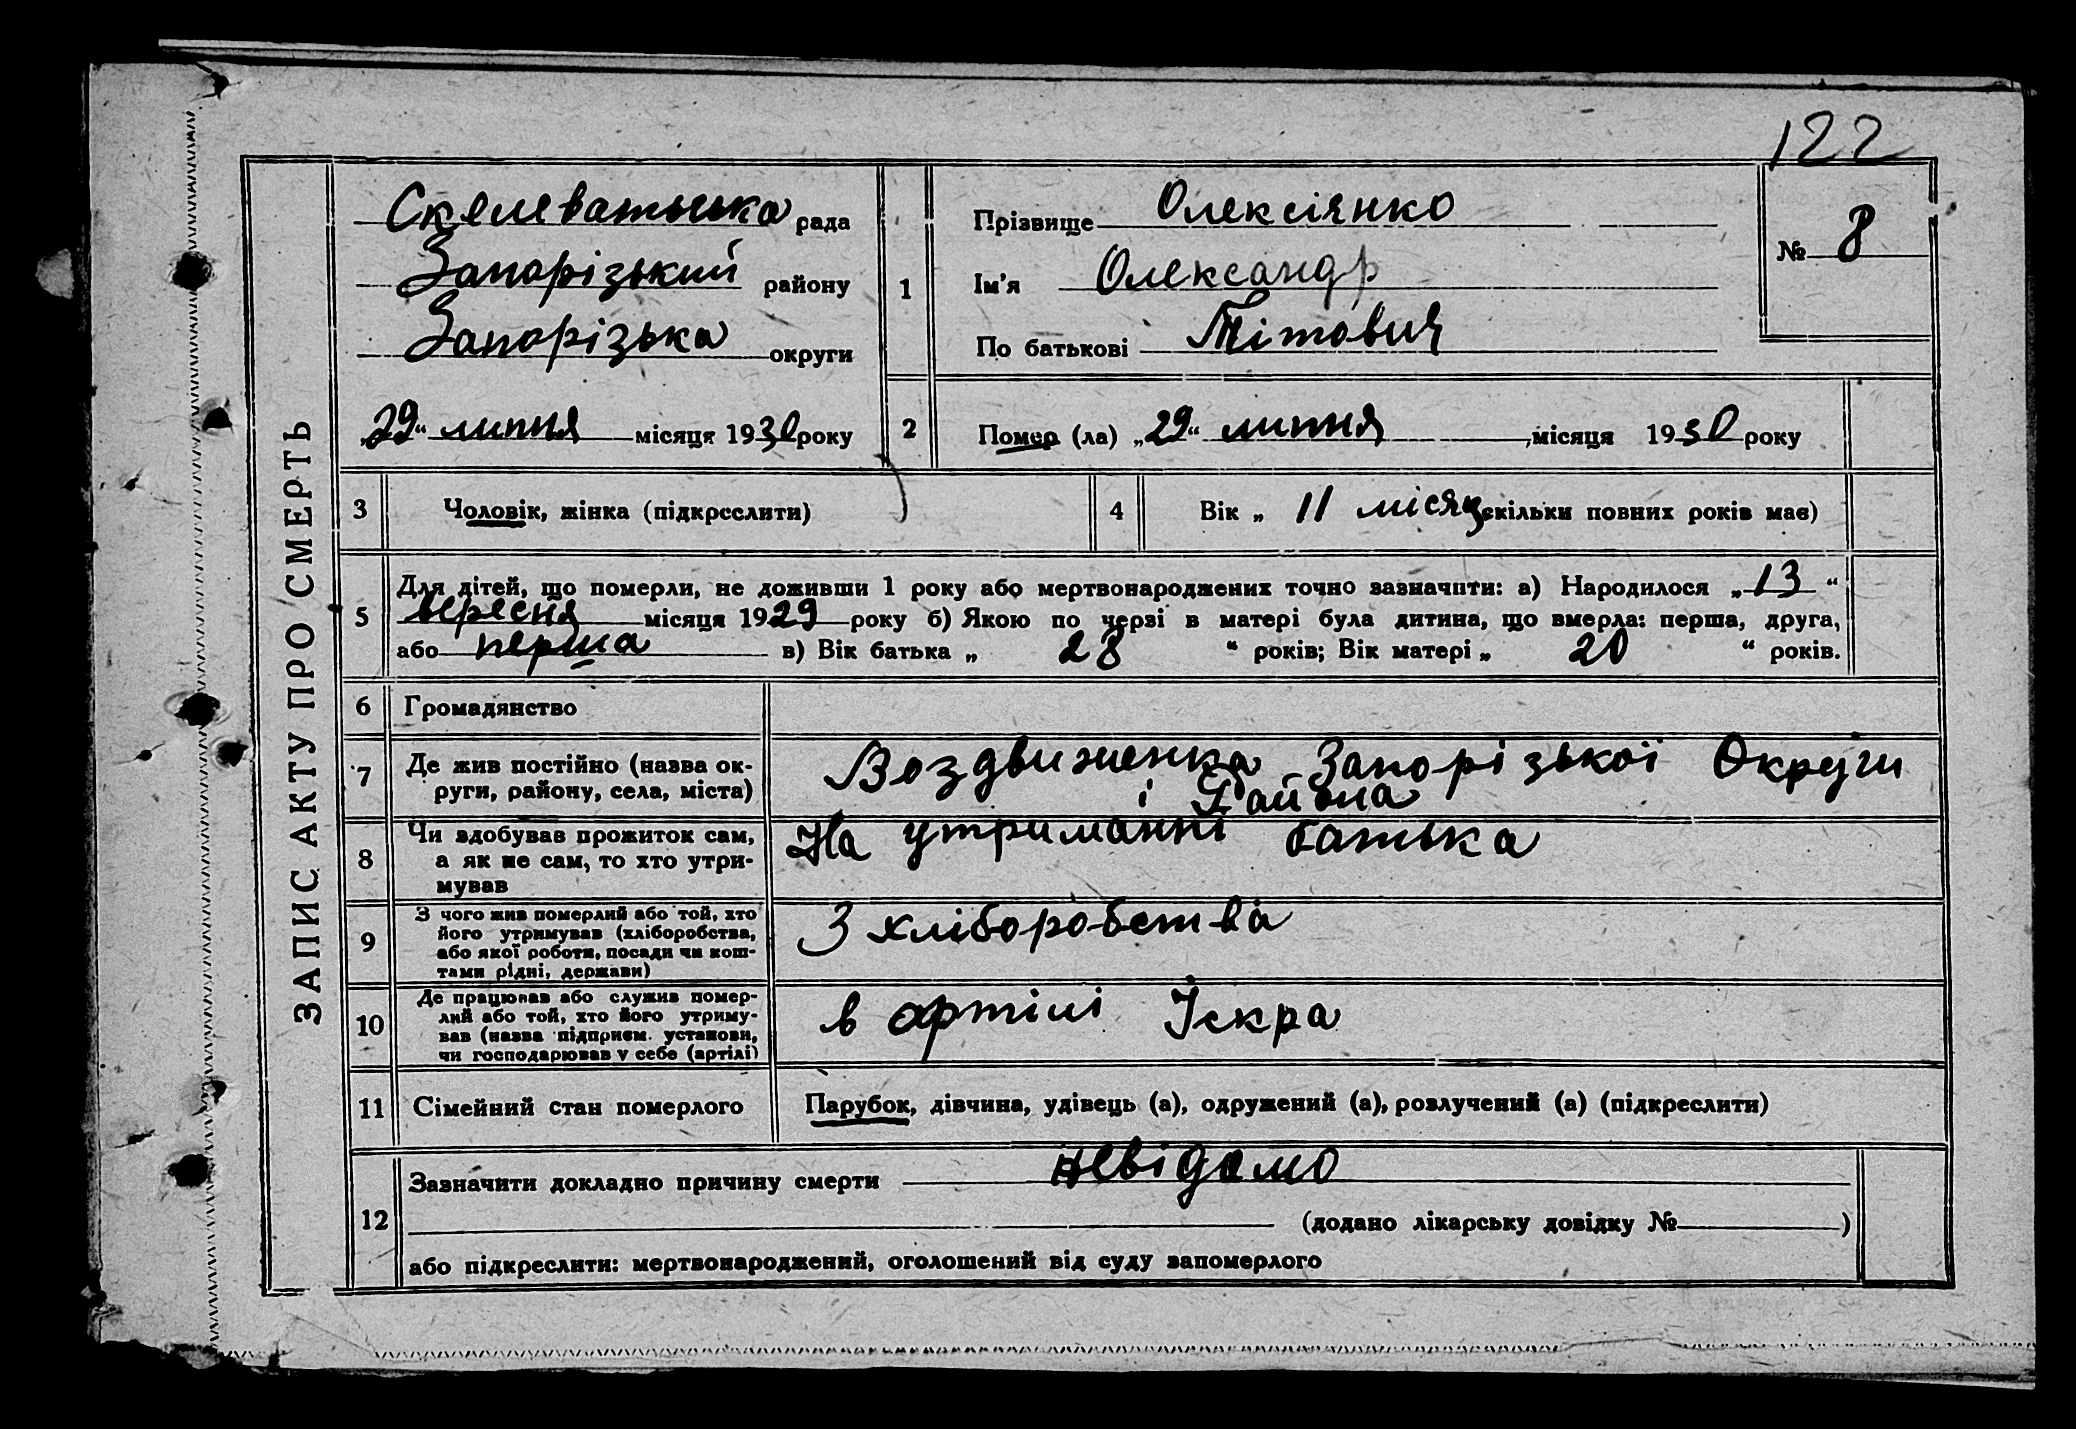 122
ЗАПИС АКТУ ПРО СМЕРТЬ
Скелеватська рада
Запорізький району
Запорізька округи
„29“ липня місяця 1930 року
1
Прізвище Олексіянко
Ім'я Олександр
По батькові Тітович
№ 8
2
Помер (ла) „29“ липня місяця 1930 року
3
Чоловік, жінка (підкреслити)
4
Вік „ 11 місяц скільки повних років має)
5
Для дітей, що померли, не доживши 1 року або мертвонароджених точно зазначити: а) Народилося „13“
вересня місяця 1929 року б) Якою по черзі в матері була дитина, що вмерла: перша, друга,
або перша в) Вік батька „ 28 “ років; Вік матері „ 20 “ років.
6
Громадянство
7
Де жив постійно (назва ок-
руги, району, села, міста)
Воздвиженка Запорізької Округи
і Района
8
Чи здобував прожиток сам,
а як не сам, то хто утри-
мував
На утриманні батька
9
З чого жив померлий або той, хто
його утримував (хліборобства,
або якої роботи, посади чи кош-
тами рідні, держави)
З хліборобства
10
Де працював або служив помер-
лий або той, хто його утриму-
вав (назва підприєм. установи,
чи господарював у себе (артілі)
в артілі Іскра
11
Сімейний стан померлого
Парубок, дівчина, удівець (а), одружений (а), розлучений (а) (підкреслити)
12
Зазначити докладно причину смерти невідомо
(додано лікарську довідку № )
або підкреслити: мертвонароджений, оголошений від суду запомерлого